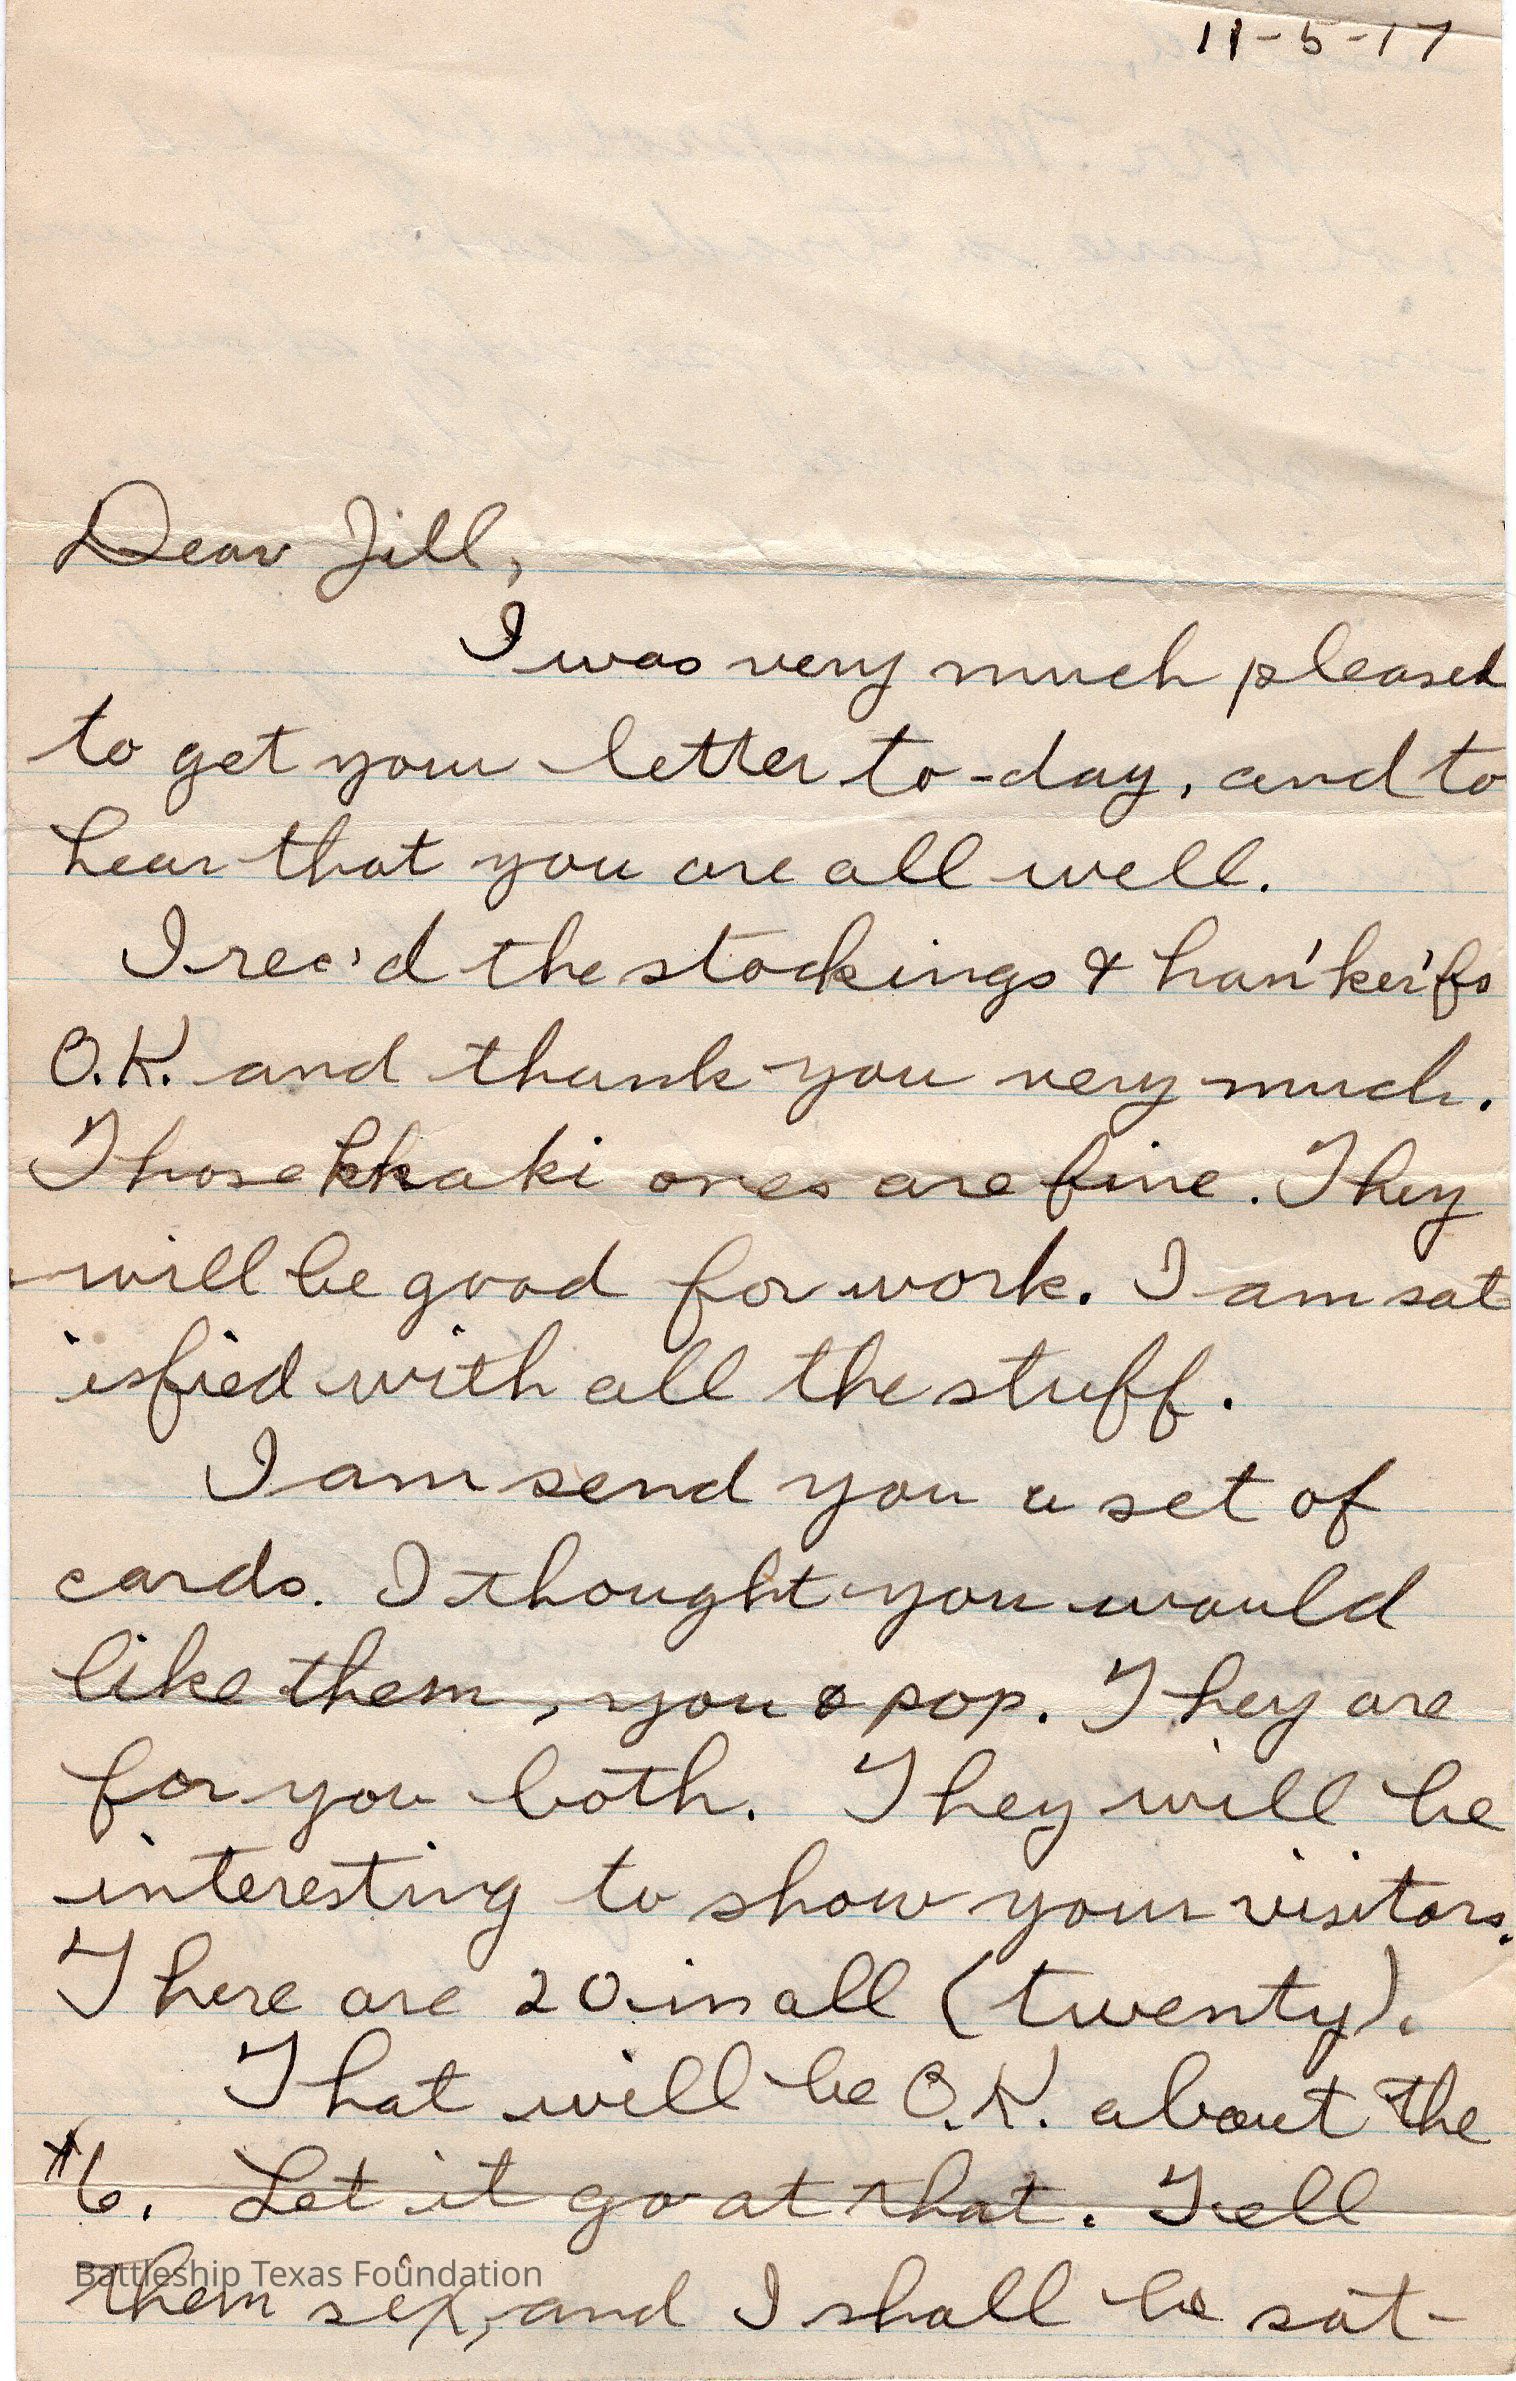 11-5-17
Dear Jill,
I was very much pleased
to get your letter to-day, and to
hear that you are all well.
I rec'd the stockings & han'ker'fs
O.K. and thank you very much.
Those khaki ones are fine. They
will be good for work. I am sat
isfied with all the stuff.
I am send you a set of
cards. I thought you would
like them, you & pop. They are
for you both. They will be
interesting to show your visitors.
There are 20 in all (twenty).
That will be O.K. about the
#6. Let it go at that. Tell
them six, and I shall be sat-
Battleship Texas Foundation